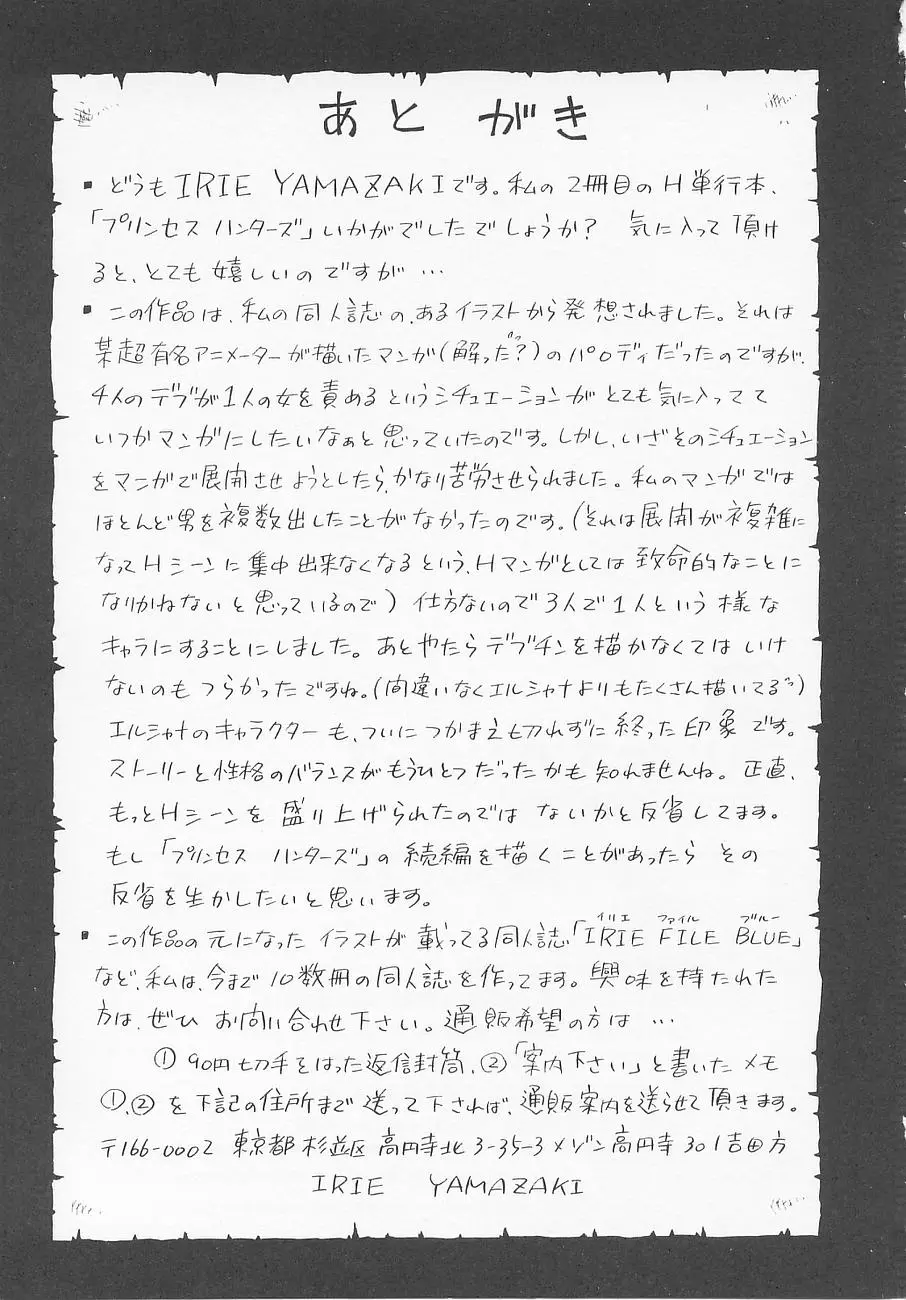 あとがき
▪ どうも IRIE YAMAZAKIです。私の2冊目のH単行本、
「プリンセス ハンターズ」いかがでしたでしょうか? 気に入って頂け
ると、とても嬉しいのですが…
▪ この作品は、私の同人誌の、あるイラストから発想されました。それは
某超有名アニメーターが描いたマンガ(解った?)のパロディだったのですが、
4人のデブが1人の女を責めるというシチュエーションがとても気に入ってて
いつかマンガにしたいなぁと思っていたのです。しかし、いざそのシチュエーション
をマンガで展開させようとしたら、かなり苦労させられました。私のマンガでは
ほとんど男を複数出したことがなかったのです。(それは展開が複雑に
なってHシーンに集中出来なくなるという、Hマンガとしては致命的なことに
なりかねないと思っているので) 仕方ないので3人で1人という様な
キャラにすることにしました。あとやたらデブチンを描かなくてはいけ
ないのもつらかったですね。(間違いなくエルシャナよりもたくさん描いてる)
エルシャナのキャラクターも、ついにつかまえ切れずに終った印象です。
ストーリーと性格のバランスがもうひとつだったかも知れませんね。正直、
もっとHシーンを盛り上げられたのではないかと反省してます。
もし「プリンセス ハンターズ」の続編を描くことがあったらその
反省を生かしたいと思います。
▪ この作品の元になったイラストが載ってる同人誌「IRIE FILE BLUE」
イリエ ファイル ブルー
など、私は、今まで10数冊の同人誌を作ってます。興味を持たれた
方は、ぜひお問い合わせ下さい。通販希望の方は…
① 90円切手をはった返信封筒、②「案内下さい」と書いたメモ
①、②を下記の住所まで送って下されば、通販案内を送らせて頂きます。
〒166-0002 東京都杉並区高円寺北3-35-3メゾン高円寺301吉田方
IRIE YAMAZAKI